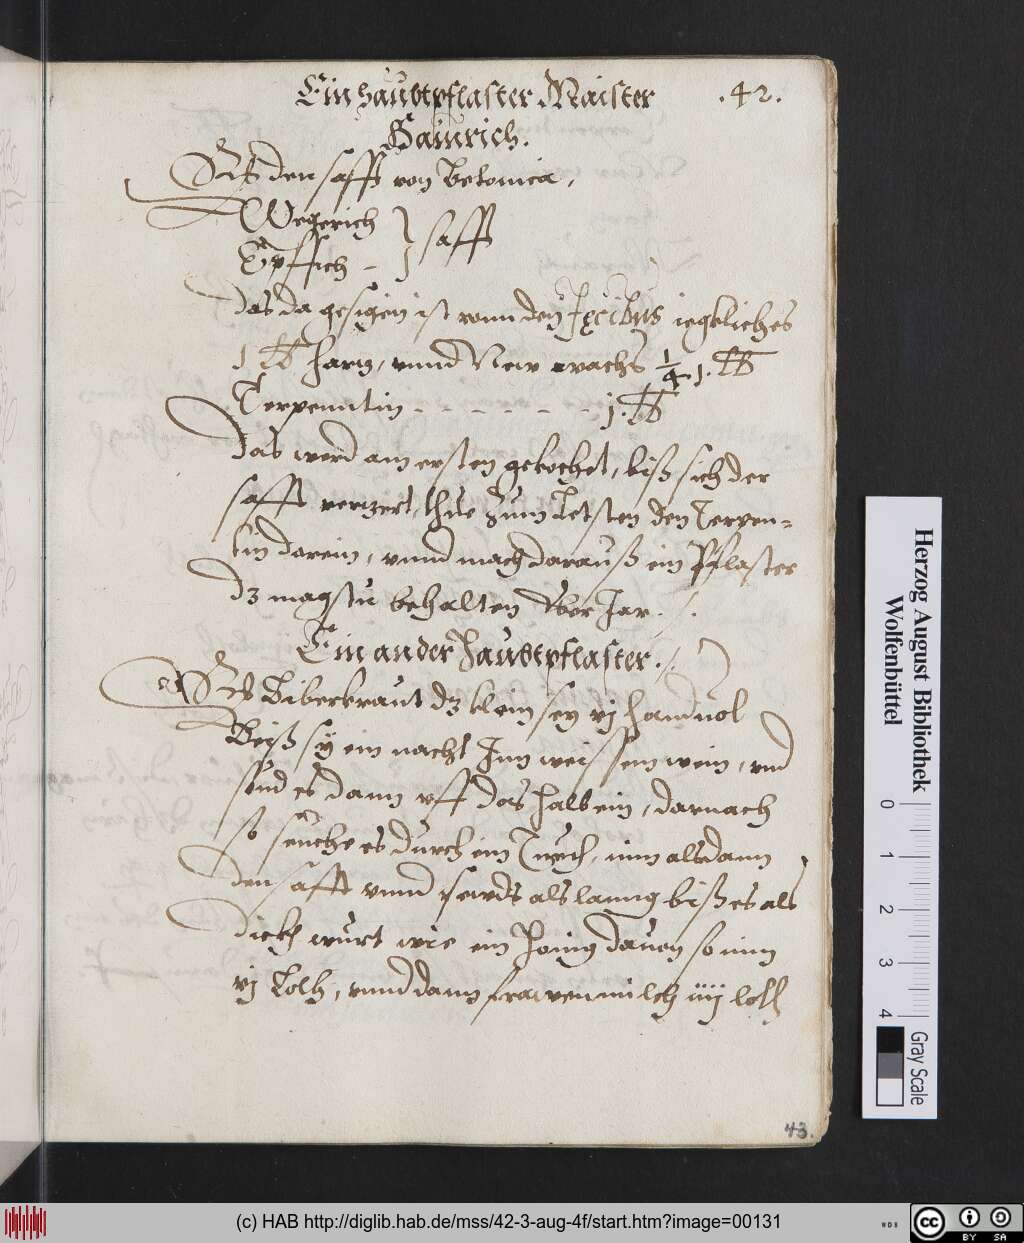 Ein haubtpflaster Maister .42.
Hainrich.
Rec den safft von Betonica,
Wegerich
Epffich – } safft
das da gesigen ist vonn den fecibus iegkliches
1 ℔ Hartz, vnnd New wachs ¼.1. ℔
Terpenntin - - - - - - 1. ℔
das werd am ersten gekochet, biß sich der
safft verzert, thue zum Letsten den Terpen=
tin darein, vnnd mach darauß ein Pflaster
dz magstu behalten Vber Jar.
Ein ander Haubtpflaster.
Rec Biberkraut dz klein sey vj Handuol
Beiß sy ein nacht Inn weissem wein, vnd
seud es dann vff das halb ein, darnach
so seuche es durch ein Tuech, nim alsdann
den safft vnnd seuds als lanng biß es als
dickh wurt wie ein Honig dauon so nim
vj Loth, vnnd dann frawenmilch iiij loth
43.
Herzog August Bibliothek
Wolfenbüttel
0 1 2 3 4
Gray Scale
(c) HAB http://diglib.hab.de/mss/42-3-aug-4f/start.htm?image=00131
WDB
cc BY SA